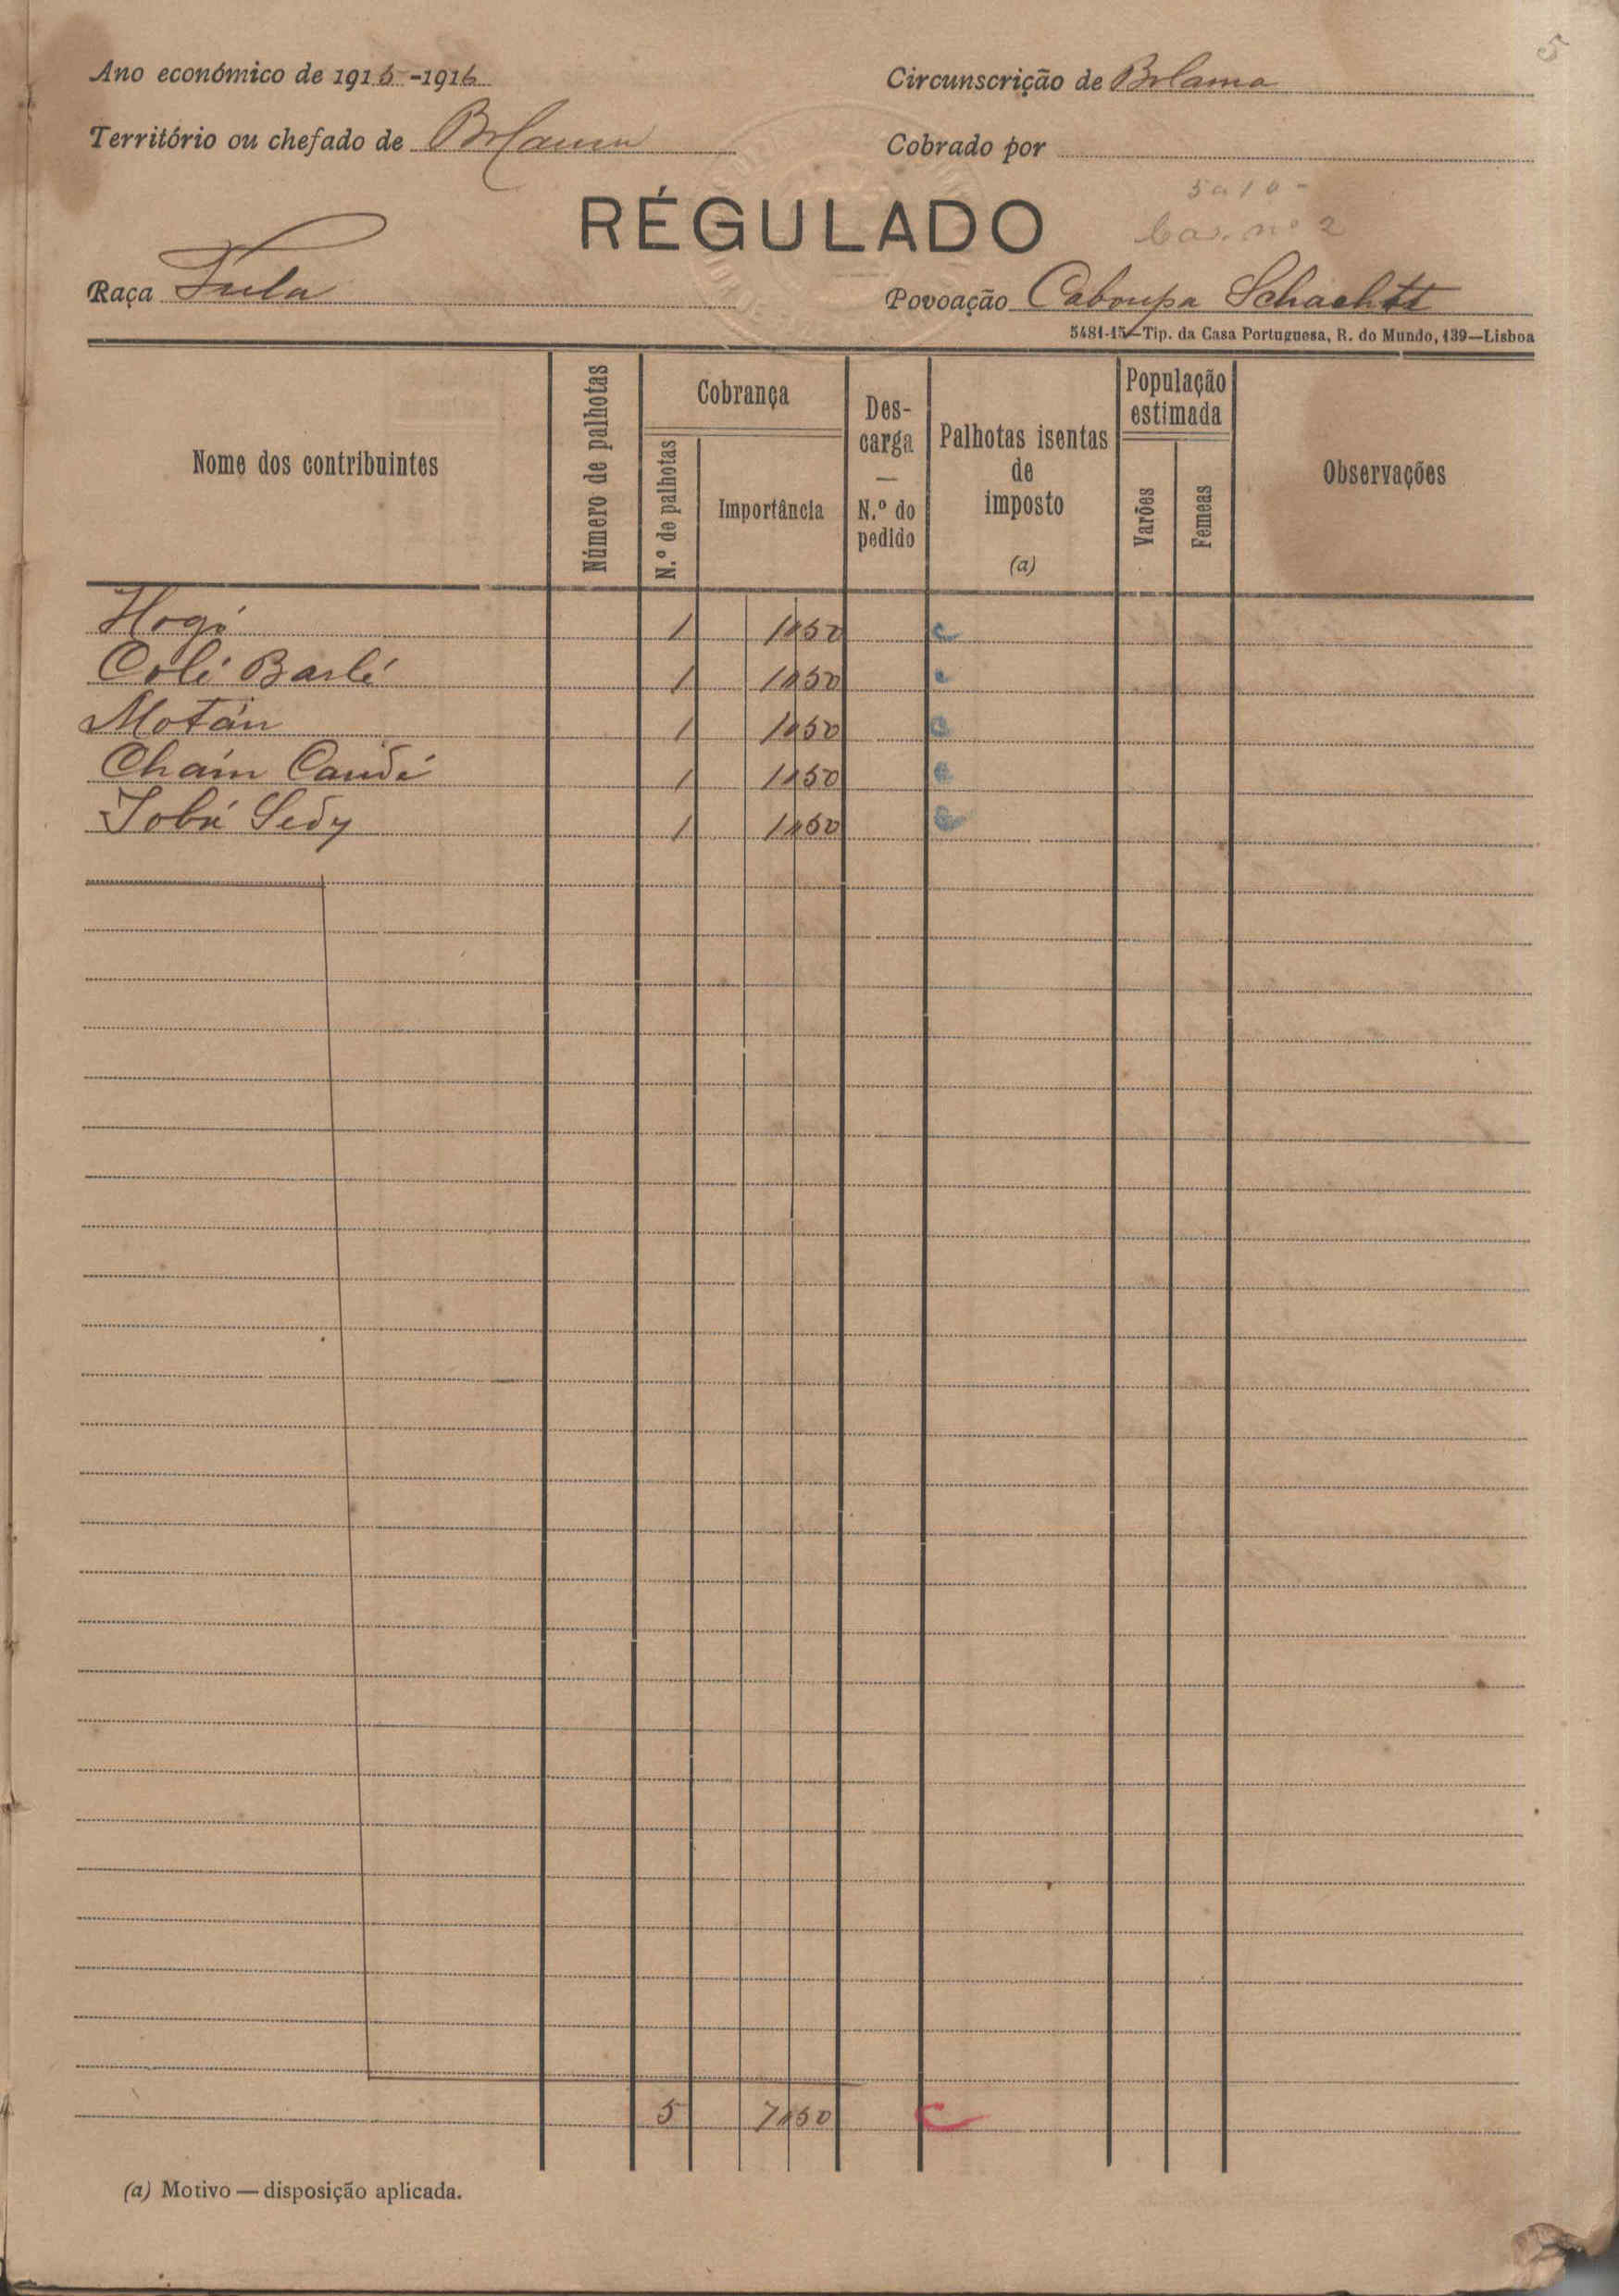 5
Ano económico de 1915-1916
Circunscrição de Bolama
Território ou chefado de Bolama
Cobrado por
5a10-
RÉGULADO
Cad. nº 2
Raça Fula
Povoação Caboupa Schachtt
5481-15—Tip. da Casa Portuguesa, R. do Mundo, 139—Lisboa
Nome dos contribuintes
Número de palhotas
Cobrança
N.º de palhotas
Importância
Descarga
—
N.º do pedido
Palhotas isentas
de
imposto
(a)
População
estimada
Varões
Femeas
Observações
Hogó 1 1$50 c
Coli Barlé 1 1$50 c
Motán 1 1$50 c
Cháin Candé 1 1$50 c
Sobú Sedy 1 1$50 c
5 7$50 C
(a) Motivo — disposição aplicada.